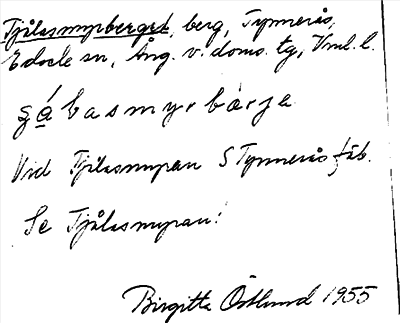 Tjålasmyrberget, berg, Tynnerås,
Edsele sn, Ång. v. doms. tg, Vnl. l.
såbasmyrbärja
Vid Tjålasmyran S Tynnerås fäb.
Se Tjålasmyran!
Birgitta Östlund 1955